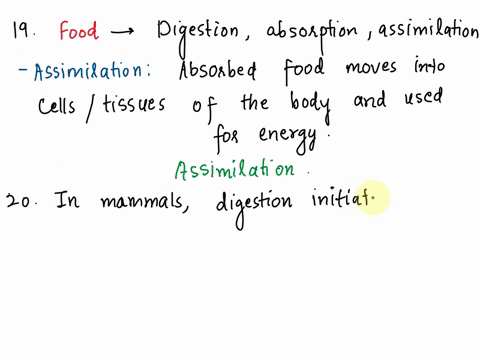 19. Food → Digestion, absorption, assimilation
- Assimilation: Absorbed food moves into
cells/tissues of the body and used
for energy.
Assimilation.
20. In mammals, digestion initiat